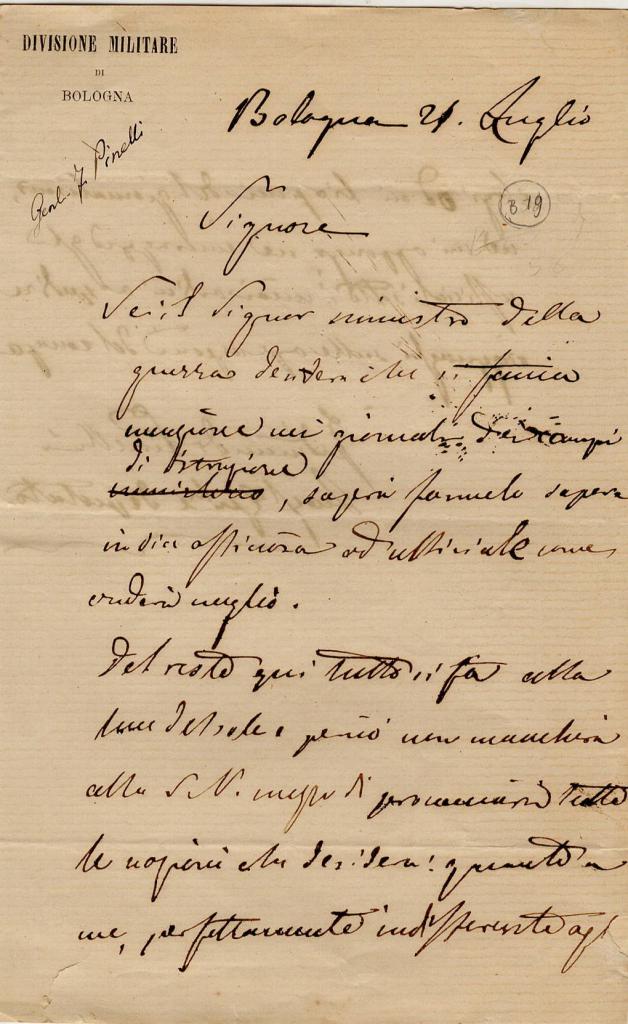 DIVISIONE MILITARE
DI
BOLOGNA
Genl. F. Pinelli
Bologna 21. Luglio
B 19
Signore
Se il Signor ministro della
guerra desidera che si faccia
menzione nei giornali dei campi
di istruzione
, saprà farmelo sapere
in via officiosa od ufficiale come
crederà meglio.
Del resto qui tutto si fa alla
luce del sole e perciò non mancherà
alla S. V. mezzo di procurarsi tutte
le nozioni che desidera: quanto a
me, perfettamente indifferente agl